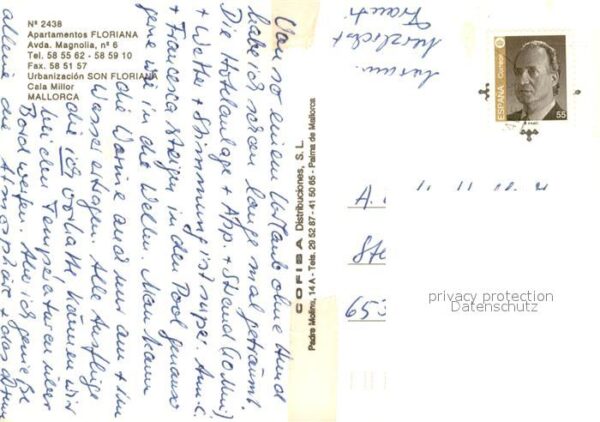 Nº 2438
Apartamentos FLORIANA
Avda. Magnolia, nº 6
Tel. 58 55 62 - 58 59 10
Fax. 58 51 57
Urbanización SON FLORIANA
Cala Millor
MALLORCA
Von so einem Urlaub ohne Hund
habe ich schon lange mal geträumt.
Die Hotelanlage + App. + Strand (10 Min)
+ Wetter + Stimmung ist super. Ann-C.
+ Francesca steigen in den Pool genauso
gerne wie in die Wellen. Man kann
die Wärme auch nur am + im
Wasser ertragen. Alle Ausflüge
die ich vorhatte können wir
bei den Temperaturen über
Bord werfen. Aber ich genieße
alleine die Atmosphäre + das
herzlichst
COFISA Distribuciones, S. L.
Padre Molina, 14 A - Tels. 29 52 87 - 41 50 65 - Palma de Mallorca
ESPAÑA
Correos
55
A.
Ste
653
privacy protection
Datenschutz